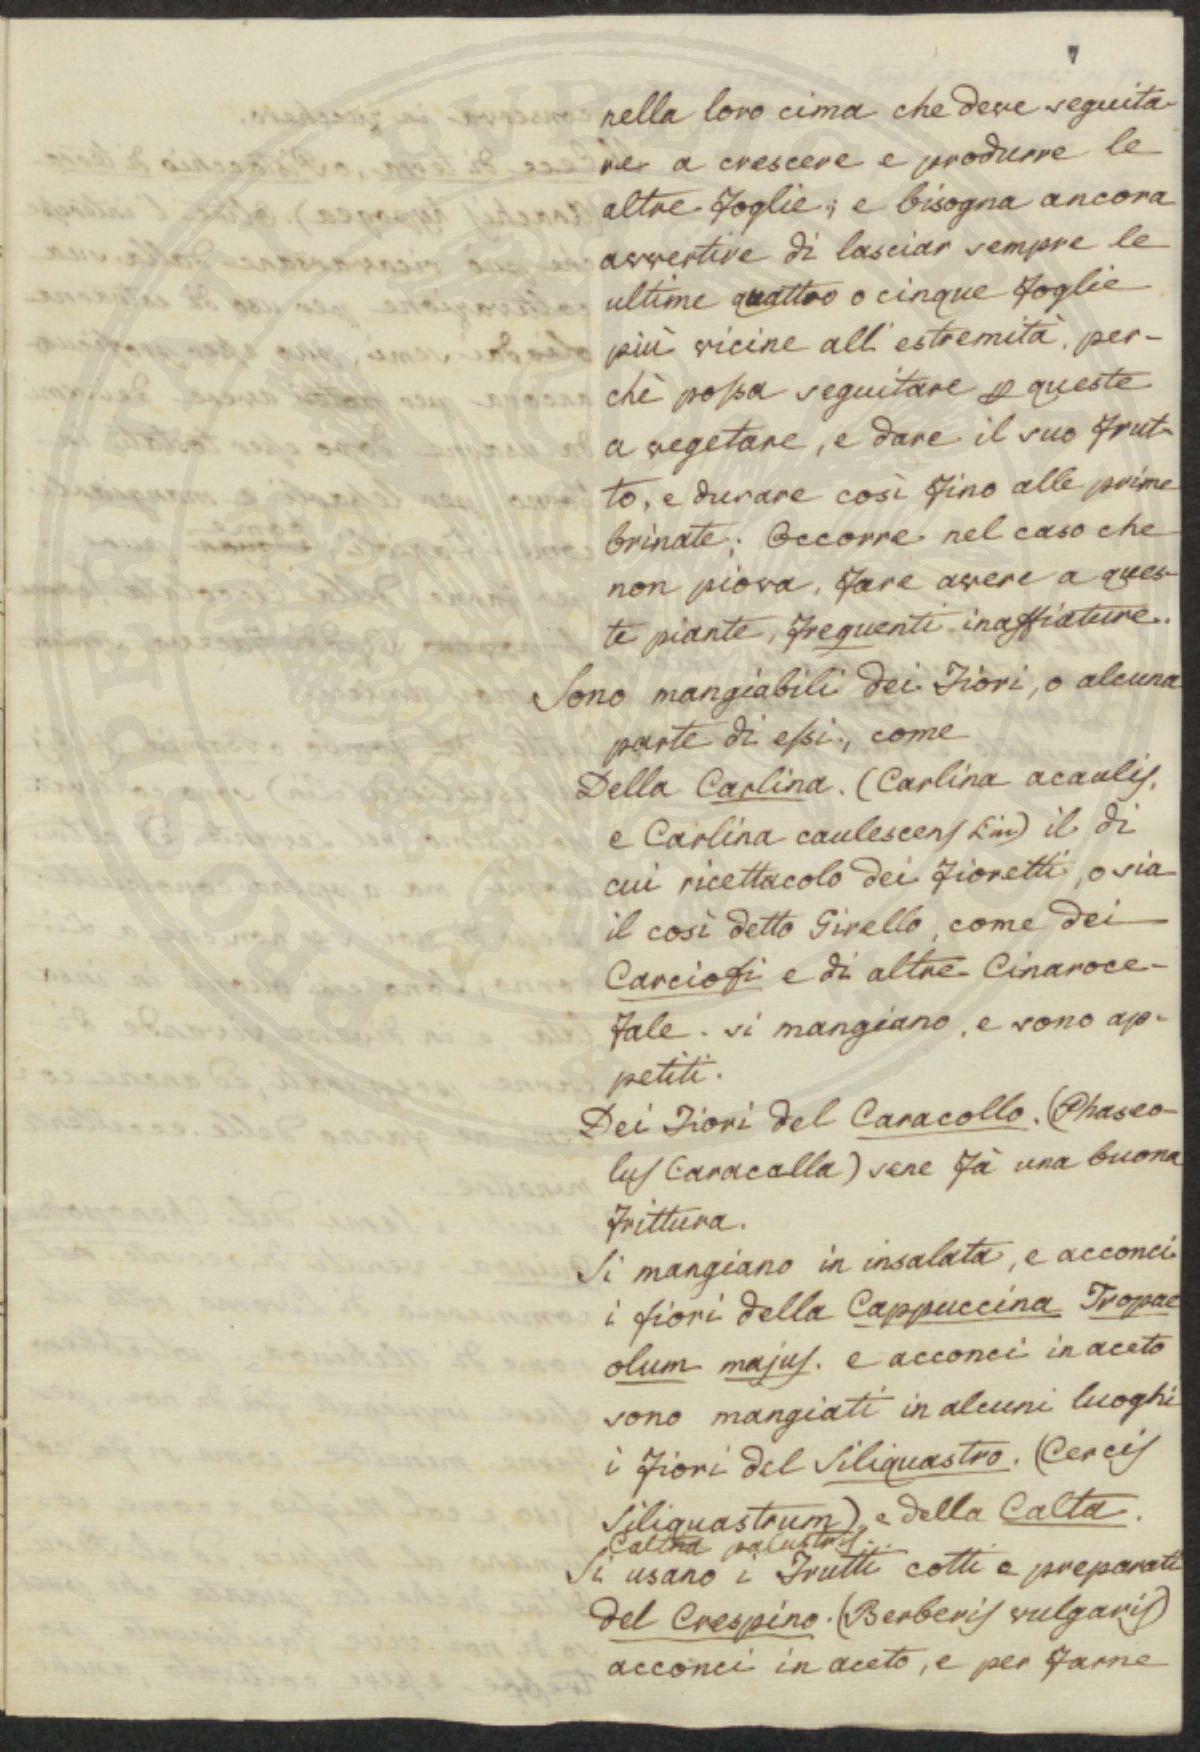 7
nella loro cima che deve seguita-
re a crescere e produrre le
altre foglie; e bisogna ancora
avvertire di lasciar sempre le
ultime quattro o cinque foglie
più vicine all'estremità, per-
chè possa seguitare p queste
a vegetare, e dare il suo frut-
to, e durare così fino alle prime
brinate; Occorre nel caso che
non piova, fare avere a ques-
te piante, frequenti inaffiature.
Sono mangiabili dei Fiori, o alcuna
parte di essi, come
Della Carlina. (Carlina acaulis,
e Carlina caulescens Lin) il di
cui ricettacolo dei fioretti, o sia
il così detto Girello, come dei
Carciofi e di altre Cinaroce-
fale. si mangiano, e sono ap-
petiti.
Dei Fiori del Caracollo. (Phaseo-
lus Caracalla) sene fà una buona
frittura.
Si mangiano in insalata, e acconci
i fiori della Cappuccina Tropae
olum majus. e acconci in aceto
sono mangiati in alcuni luoghi
i fiori del Siliquastro. (Cercis
Siliquastrum), e della Calta.
Caltha palustris.
Si usano i Frutti cotti e preparati
del Crespino. (Berberis vulgaris)
acconci in aceto, e per farne